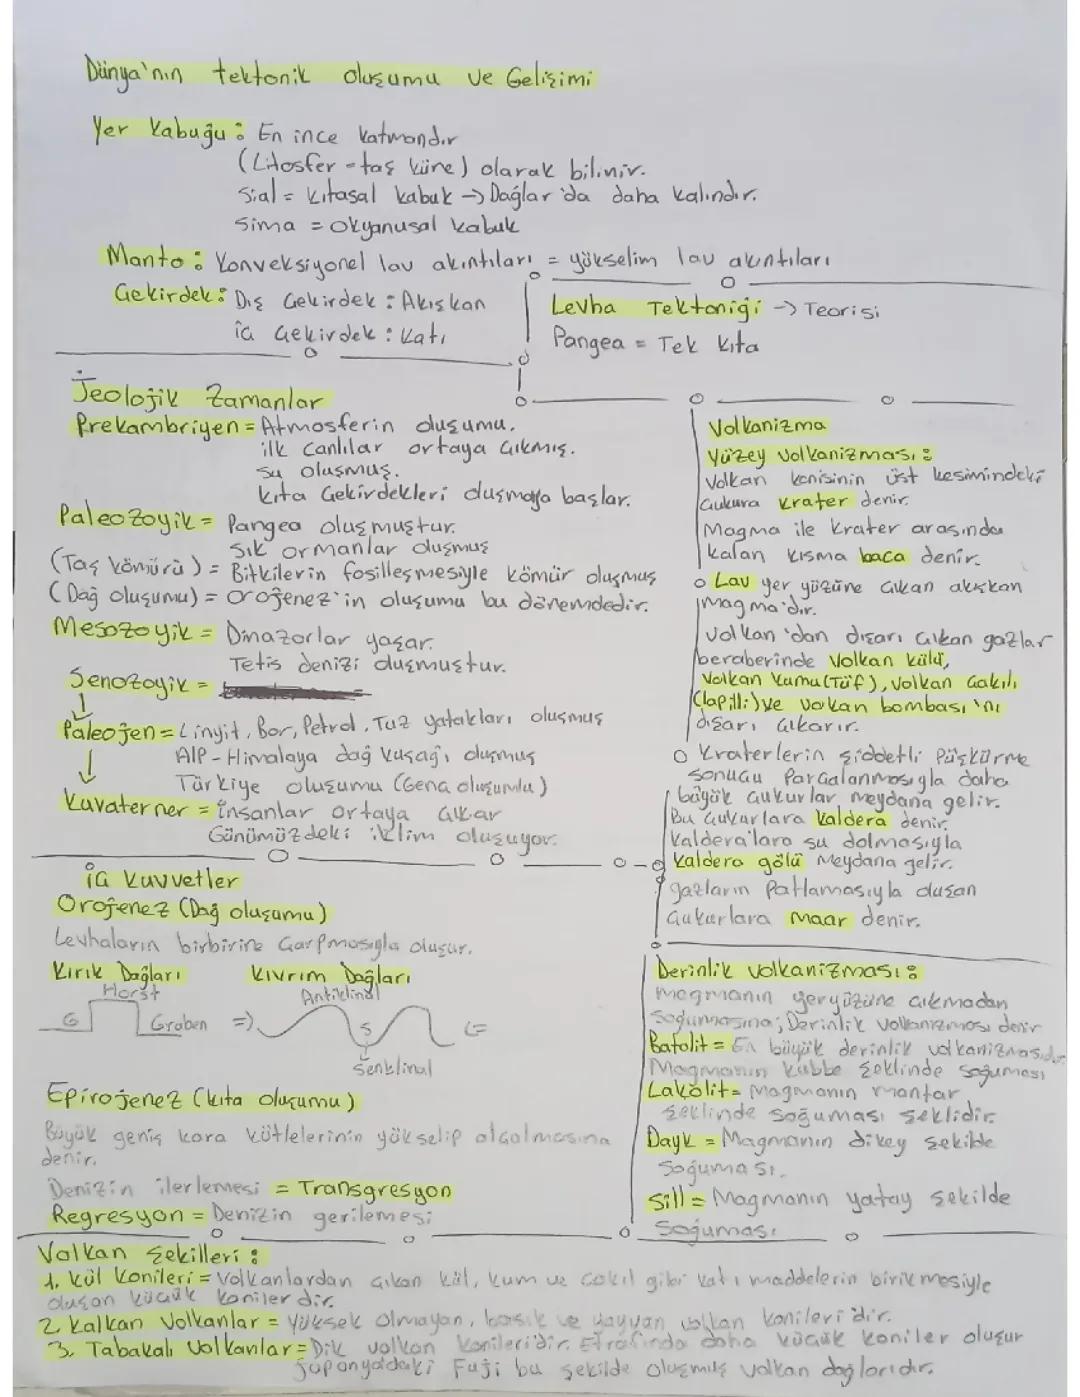 Dünya'nın tektonik oluşumu ve Gelişimi
Yer Kabuğu: En ince katmandır
(Litosfer = taş küre) olarak bilinir.
Sial = kıtasal kabuk → Dağlar'da daha kalındır.
Sima = okyanusal kabuk
Manto: Konveksiyonel lav akıntıları = yükselim lav akıntıları
Çekirdek: Dış Çekirdek: Akışkan
İç Çekirdek: Katı
Levha Tektoniği → Teorisi
Pangea = Tek Kıta
Jeolojik Zamanlar
Prekambriyen = Atmosferin oluşumu.
ilk canlılar ortaya çıkmış.
su oluşmuş.
kıta çekirdekleri oluşmaya başlar.
Paleozoyik = Pangea oluşmuştur.
Sık ormanlar oluşmuş
(Taş kömürü) = Bitkilerin fosilleşmesiyle kömür oluşmuş
(Dağ oluşumu) = Orojenez'in oluşumu bu dönemdedir.
Mesozoyik = Dinazorlar yaşar.
Tetis denizi oluşmuştur.
Senozoyik =
↓
Paleojen = Linyit, Bor, Petrol, Tuz yatakları oluşmuş
Alp-Himalaya dağ kuşağı oluşmuş
↓
Türkiye oluşumu (Genç oluşumlu)
Kuvaterner = İnsanlar ortaya çıkar
Günümüzdeki iklim oluşuyor.
Volkanizma
Yüzey Volkanizması:
Volkan konisinin üst kesimindeki
çukura krater denir.
Magma ile krater arasında
kalan kısma baca denir.
Lav yer yüzüne çıkan akışkan
magma'dır.
Volkan'dan dışarı çıkan gazlar
beraberinde Volkan külü,
Volkan kumu (Tüf), Volkan çakılı
(lapilli) ve volkan bombası'nı
dışarı çıkarır.
Kraterlerin şiddetli Püskürme
sonucu parçalanmasıyla daha
büyük çukurlar meydana gelir.
Bu çukurlara kaldera denir.
kaldera'lara su dolmasıyla
kaldera gölü meydana gelir.
gazların Patlamasıyla oluşan
çukurlara maar denir.
İç Kuvvetler
Orojenez (Dağ oluşumu)
Levhaların birbirine çarpmasıyla oluşur.
Kırık Dağları
Kıvrım Dağları
Horst
Antiklinal
G
Graben ⇒
S
⇐
Senklinal
Epirojenez (kıta oluşumu)
Büyük geniş kara kütlelerinin yükselip alçalmasına
denir.
Denizin ilerlemesi = Transgresyon
Regresyon = Denizin gerilemesi
Derinlik volkanizması:
magmanın yeryüzüne çıkmadan
soğumasına; Derinlik volkanizması denir
Batolit = En büyük derinlik volkanizmasıdır
Magmanın kubbe şeklinde soğuması
Lakolit = Magmanın mantar
şeklinde soğuması şeklidir.
Dayk = Magmanın dikey şekilde
soğuması.
Sill = Magmanın yatay şekilde
soğuması
Volkan Şekilleri:
1. Kül Konileri = Volkanlardan çıkan kül, kum ve çakıl gibi katı maddelerin birikmesiyle
oluşan küçük koniler dir.
2. Kalkan Volkanlar = Yüksek olmayan, basık ve yayvan volkan konileri'dir.
3. Tabakalı Volkanlar = Dik volkan konileri'dir. Etrafında daha küçük koniler oluşur
Japonya'daki Fuji bu şekilde oluşmuş volkan dağlarıdır.